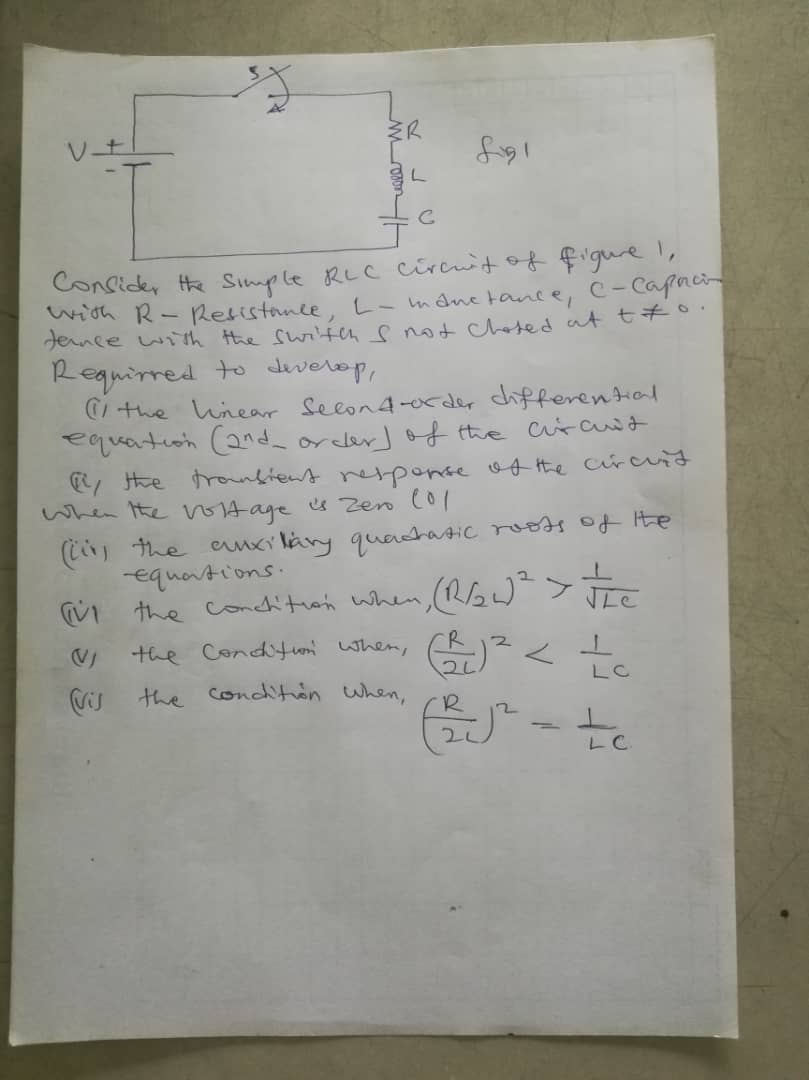 S
V + -
R
L
C
fig 1
Consider the simple RLC circuit of figure 1,
with R - Resistance, L - inductance, C - Capaci
tance with the switch S not closed at t ≠ 0.
Requirred to develop,
(i) the linear Second-order differential
equation (2nd_order) of the circuit
(ii) the transient response of the circuit
when the voltage is zero (0)
(iii) the auxilary quadratic roots of the
equations.
(iv) the condition when, (R/2L)² > 1/√LC
(v) the Condition when, (R/2L)² < 1/LC
(vi) the condition when, (R/2L)² = 1/LC